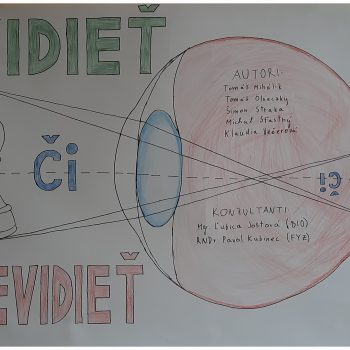 VIDIEŤ
Či
EVIDIEŤ
AUTORI:
Tomáš Mihálik
Tomáš Olneczky
Šimon Straka
Michal Šťastný
Klaudia Večerová
KONZULTANTI:
Mgr. Ľubica Jostová (BIO)
RNDr Pavol Kubinec (FYZ)
či